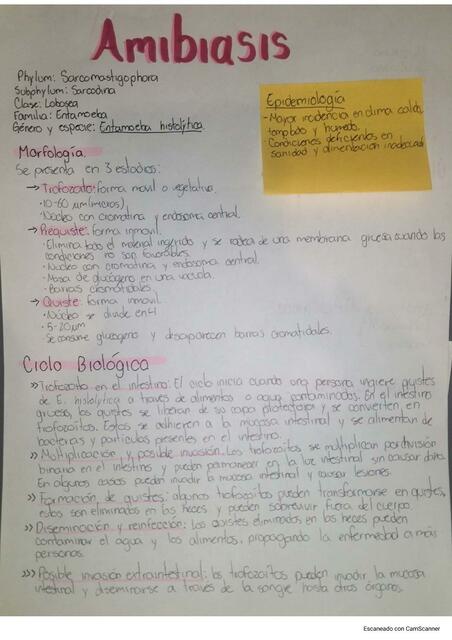 Amibiasis
Phylum: Sarcomastigophora
Subphylum: Sarcodina
Clase: Lobosea
Familia: Entamoeba
Género y especie: Entamoeba histolytica
Epidemiología
- Mayor incidencia en clima calido,
templado y humedo.
- Condiciones deficientes en
sanidad y alimentación inadecuada
Morfología:
Se presenta en 3 estadios:
→ Trofozoito: forma movil o vegetativa
· 10-60 µm (micras)
· Núcleo con cromatina y endosoma central.
→ Prequiste: forma inmovil.
· Elimina todo el material ingerido y se rodea de una membrana gruesa cuando las
condiciones no son favorables.
· Núcleo con cromatina y endosoma central.
· Masa de glucógeno en una vacuola.
· Barras cromatidales.
→ Quiste: forma inmovil.
· Núcleo se divide en 4
· 5-20µm
· Se consume glucogeno y desaparecen barras cromatidales.
Ciclo Biológico
»Trofozoito en el intestino: El ciclo inicia cuando una persona ingiere quistes
de E. histolytica a través de alimentos o agua contaminados. En el intestino
grueso, los quistes se liberan de su capa protectora y se convierten en
trofozoitos. Estos se adhieren a la mucosa intestinal y se alimentan de
bacterias y partículas presentes en el intestino.
»Multiplicación y posible invasión: Los trofozoitos se multiplican por división
binaria en el intestino y pueden permanecer en la luz intestinal sin causar daño.
En algunos casos pueden invadir la mucosa intestinal y causar lesiones.
»Formación de quistes: algunos trofozoitos pueden transformarse en quistes,
estos son eliminados en las heces y pueden sobrevivir fuera del cuerpo.
»Diseminación y reinfección: Los quistes eliminados en las heces pueden
contaminar el agua y los alimentos, propagando la enfermedad a más
personas.
»» Posible invasión extraintestinal: los trofozoitos pueden invadir la mucosa
intestinal y diseminarse a través de la sangre hasta otros órganos.
Escaneado con CamScanner